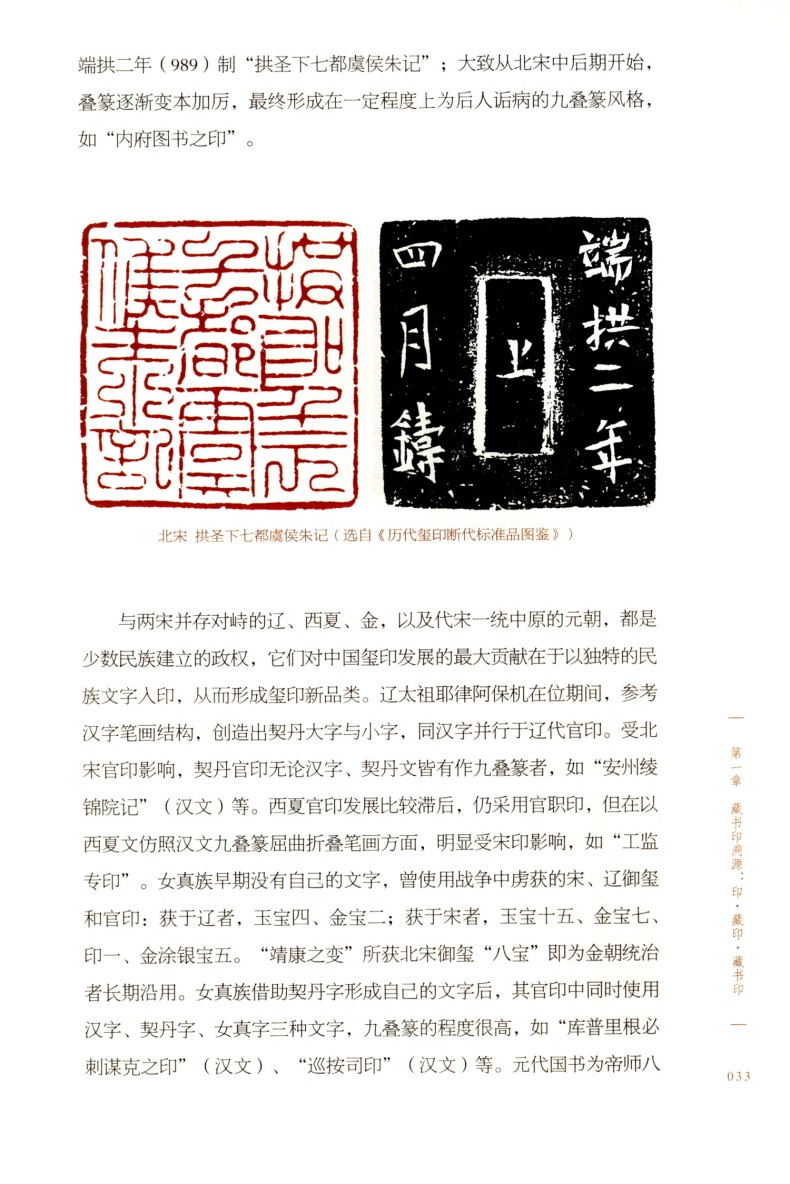 端拱二年（989）制“拱圣下七都虞侯朱记”；大致从北宋中后期开始，
叠篆逐渐变本加厉，最终形成在一定程度上为后人诟病的九叠篆风格，
如“内府图书之印”。
拱圣下七都虞侯朱记
端拱二年
上
四月鑄
北宋 拱圣下七都虞侯朱记（选自《历代玺印断代标准品图鉴》）
与两宋并存对峙的辽、西夏、金，以及代宋一统中原的元朝，都是
少数民族建立的政权，它们对中国玺印发展的最大贡献在于以独特的民
族文字入印，从而形成玺印新品类。辽太祖耶律阿保机在位期间，参考
汉字笔画结构，创造出契丹大字与小字，同汉字并行于辽代官印。受北
宋官印影响，契丹官印无论汉字、契丹文皆有作九叠篆者，如“安州绫
锦院记”（汉文）等。西夏官印发展比较滞后，仍采用官职印，但在以
西夏文仿照汉文九叠篆屈曲折叠笔画方面，明显受宋印影响，如“工监
专印”。女真族早期没有自己的文字，曾使用战争中虏获的宋、辽御玺
和官印：获于辽者，玉宝四、金宝二；获于宋者，玉宝十五、金宝七、
印一、金涂银宝五。“靖康之变”所获北宋御玺“八宝”即为金朝统治
者长期沿用。女真族借助契丹字形成自己的文字后，其官印中同时使用
汉字、契丹字、女真字三种文字，九叠篆的程度很高，如“库普里根必
刺谋克之印”（汉文）、“巡按司印”（汉文）等。元代国书为帝师八
第一章 藏书印溯源：印·藏印·藏书印
033